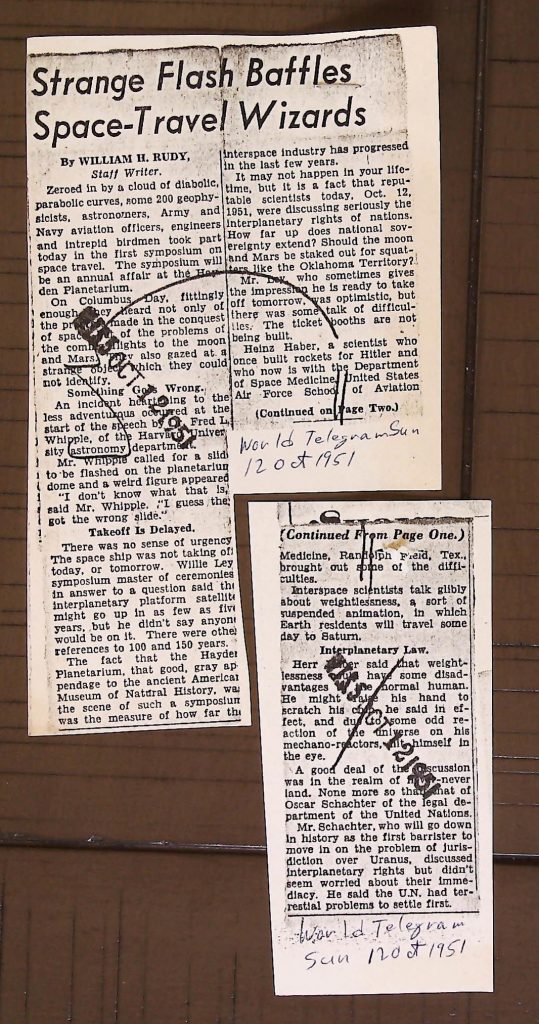 Strange Flash Baffles
Space-Travel Wizards
By WILLIAM H. RUDY,
Staff Writer.
Zeroed in by a cloud of diabolic,
parabolic curves, some 200 geophy-
sicists, astronomers, Army and
Navy aviation officers, engineers
and intrepid birdmen took part
today in the first symposium on
space travel. The symposium will
be an annual affair at the Hay-
den Planetarium.
On Columbus Day, fittingly
enough they heard not only of
the made in the conquest
of space of the problems of
the flights to the moon
and Mars. also gazed at a
strange object which they could
not identify.
Something Wrong.
An incident to the
less adventurous occurred at the
start of the speech by Fred L.
Whipple, of the Harvard Univer
sity astronomy department.
Mr. Whipple called for a slid
to be flashed on the planetarium
dome and a weird figure appeared
"I don't know what that is,
said Mr. Whipple. "I guess the
got the wrong slide."
Takeoff Is Delayed.
There was no sense of urgency
The space ship was not taking off
today, or tomorrow. Willie Ley
symposium master of ceremonies
in answer to a question said the
interplanetary platform satellite
might go up in as few as five
years, but he didn't say anyone
would be on it. There were other
references to 100 and 150 years.
The fact that the Hayden
Planetarium, that good, gray ap
pendage to the ancient American
Museum of Natural History, was
the scene of such a symposium
was the measure of how far the
interspace industry has progressed
in the last few years.
It may not happen in your life-
time, but it is a fact that repu-
table scientists today, Oct. 12,
1951, were discussing seriously the
interplanetary rights of nations.
How far up does national sov-
ereignty extend? Should the moon
and Mars be staked out for squat-
ters like the Oklahoma Territory?
Mr. Ley, who sometimes gives
the impression he is ready to take
off tomorrow, was optimistic, but
there was some talk of difficul-
ties. The ticket booths are not
being built.
Heinz Haber, a scientist who
once built rockets for Hitler and
who now is with the Department
of Space Medicine, United States
Air Force School of Aviation
(Continued on Page Two.)
OCT 12 1951
World Telegram Sun
12 Oct 1951
(Continued From Page One.)
Medicine, Randolph Field, Tex.,
brought out some of the diffi-
culties.
Interspace scientists talk glibly
about weightlessness, a sort of
suspended animation, in which
Earth residents will travel some
day to Saturn.
Interplanetary Law.
Herr Haber said that weight-
lessness have some disad-
vantages normal human.
He might raise his hand to
scratch his chin, he said in ef-
fect, and due to some odd re-
action of the universe on his
mechano-reactors, himself in
the eye.
A good deal of the discussion
was in the realm of never-never
land. None more so than that of
Oscar Schachter of the legal de-
partment of the United Nations.
Mr. Schachter, who will go down
in history as the first barrister to
move in on the problem of juris-
diction over Uranus, discussed
interplanetary rights but didn't
seem worried about their imme-
diacy. He said the U.N. had ter-
restial problems to settle first.
OCT 12 1951
World Telegram
Sun 12 Oct 1951